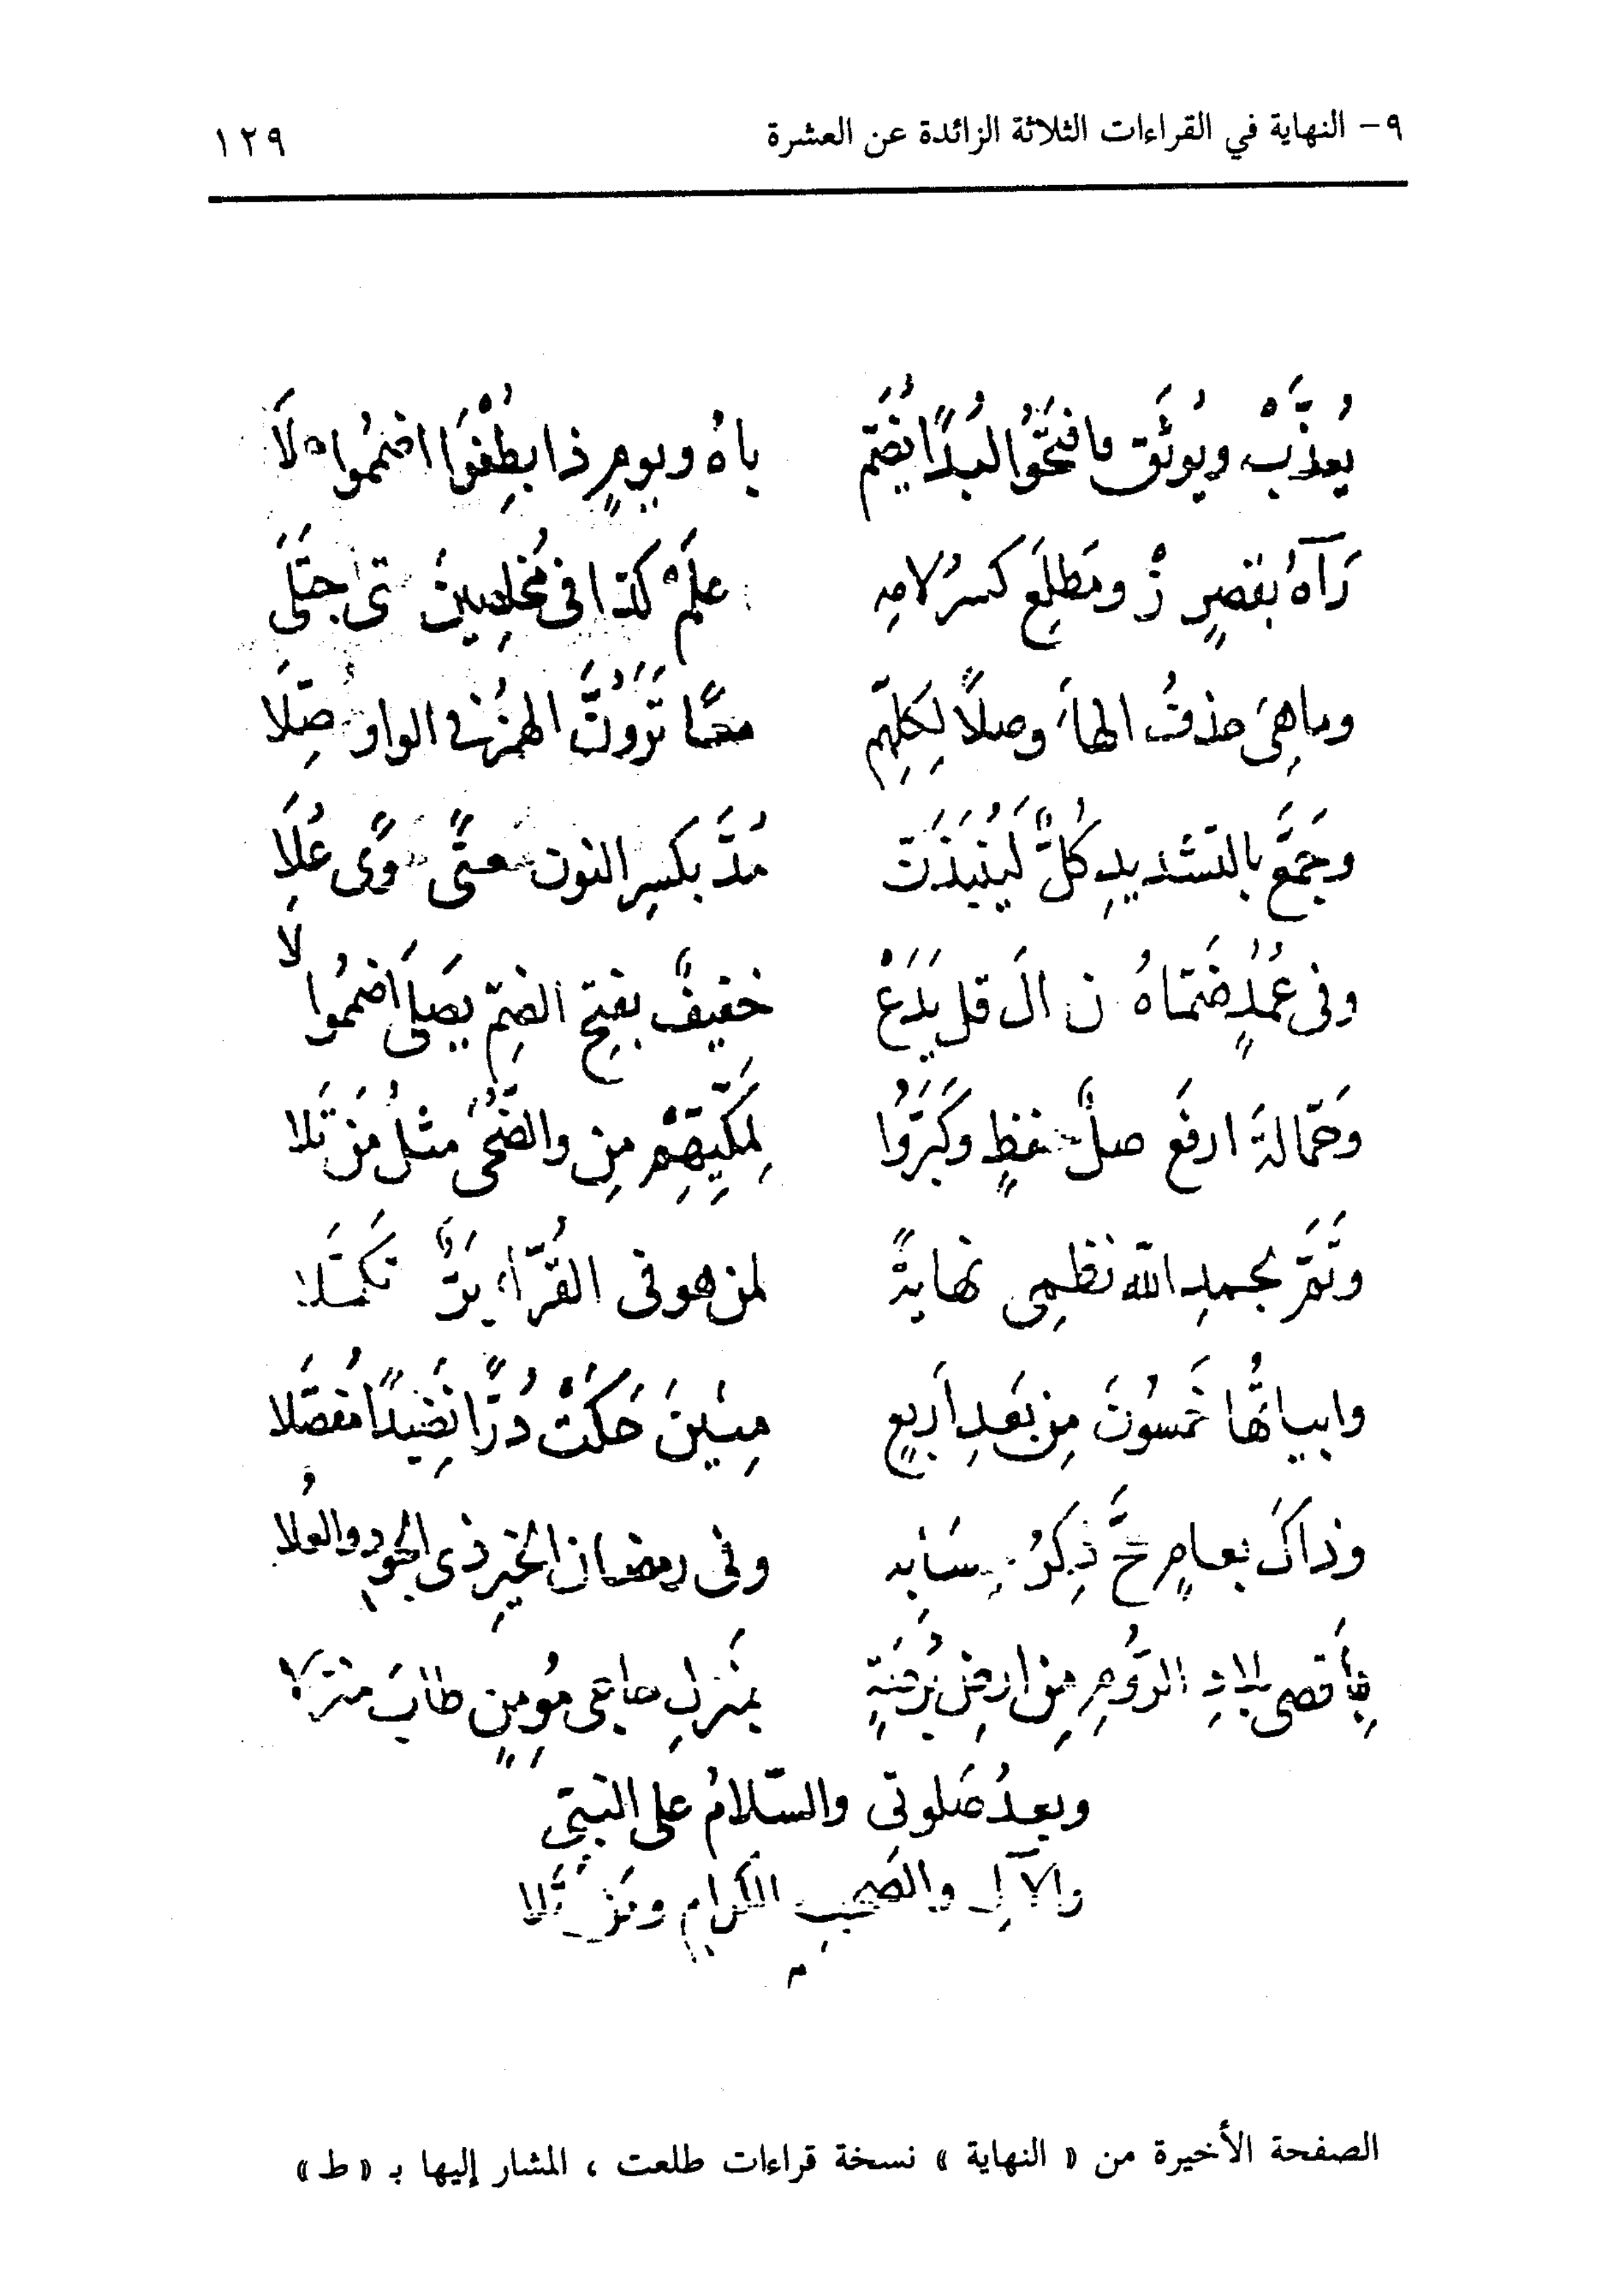 ٩- النهاية في القراءات الثلاثة الزائدة عن العشرة ١٢٩
يُعذَّبْ ويُوثَق فافتحُوا لُبَدًا بضَم باهُ ويومٍ ذا بطِغْوَا اضمُموا
رَآهُ بقصرٍ زْ ومَطلِع كسرُ لامِهِ علَمْ كذا فى مُخلِصينَ
وماهِىَ حذفُ الهاءَ وصلاً لِكلِّهِم معًا تَرَوُنَّ الهمزُ فى الواو صِّلَا
وجَمَّعَ بالتشديدِ كلٌّ لَيُنبَذَنَّ مُدَّ بكسرِ النون عُلَا
وفى عُمُدٍ ضَمّاهُ ن ال قل يَدَعْ خفيفٌ بفتحِ الضمِّ يصَلَى اضمُموا لَا
وحَمّالةَ ارفَع وكبّرَوُا لِمَكِّيِّهِمْ مِن والضُّحَى مثلُ مَن تَلا
وتَمَّ بحمدِ الله نظمِى نهايةً لمن هو فى القُرّاءِ تكمّلا
وابياتُها خَمسُونَ مِن بَعدِ اربعٍ مِئينَ حَكَتْ دُرًّا نَضِيدًا مُفصَّلا
وذاكَ بعامٍ حَجَّ ذِكرُ وفى رمضان الخيرِ ذى الجودِ والعُلا
بِأقصى بلادِ الرُّومِ مِن ارضِ بُرصَةٍ بمَنزلِ حاجى مُومِنٍ طابَ منزلا
وبعدُ صَلوتى والسّلامُ على النبىّ
والآلِ والصَّحبِ الكرامِ ومَن تَلا
م
الصفحة الأخيرة من « النهاية » نسخة قراءات طلعت ، المشار إليها بـ « ط »